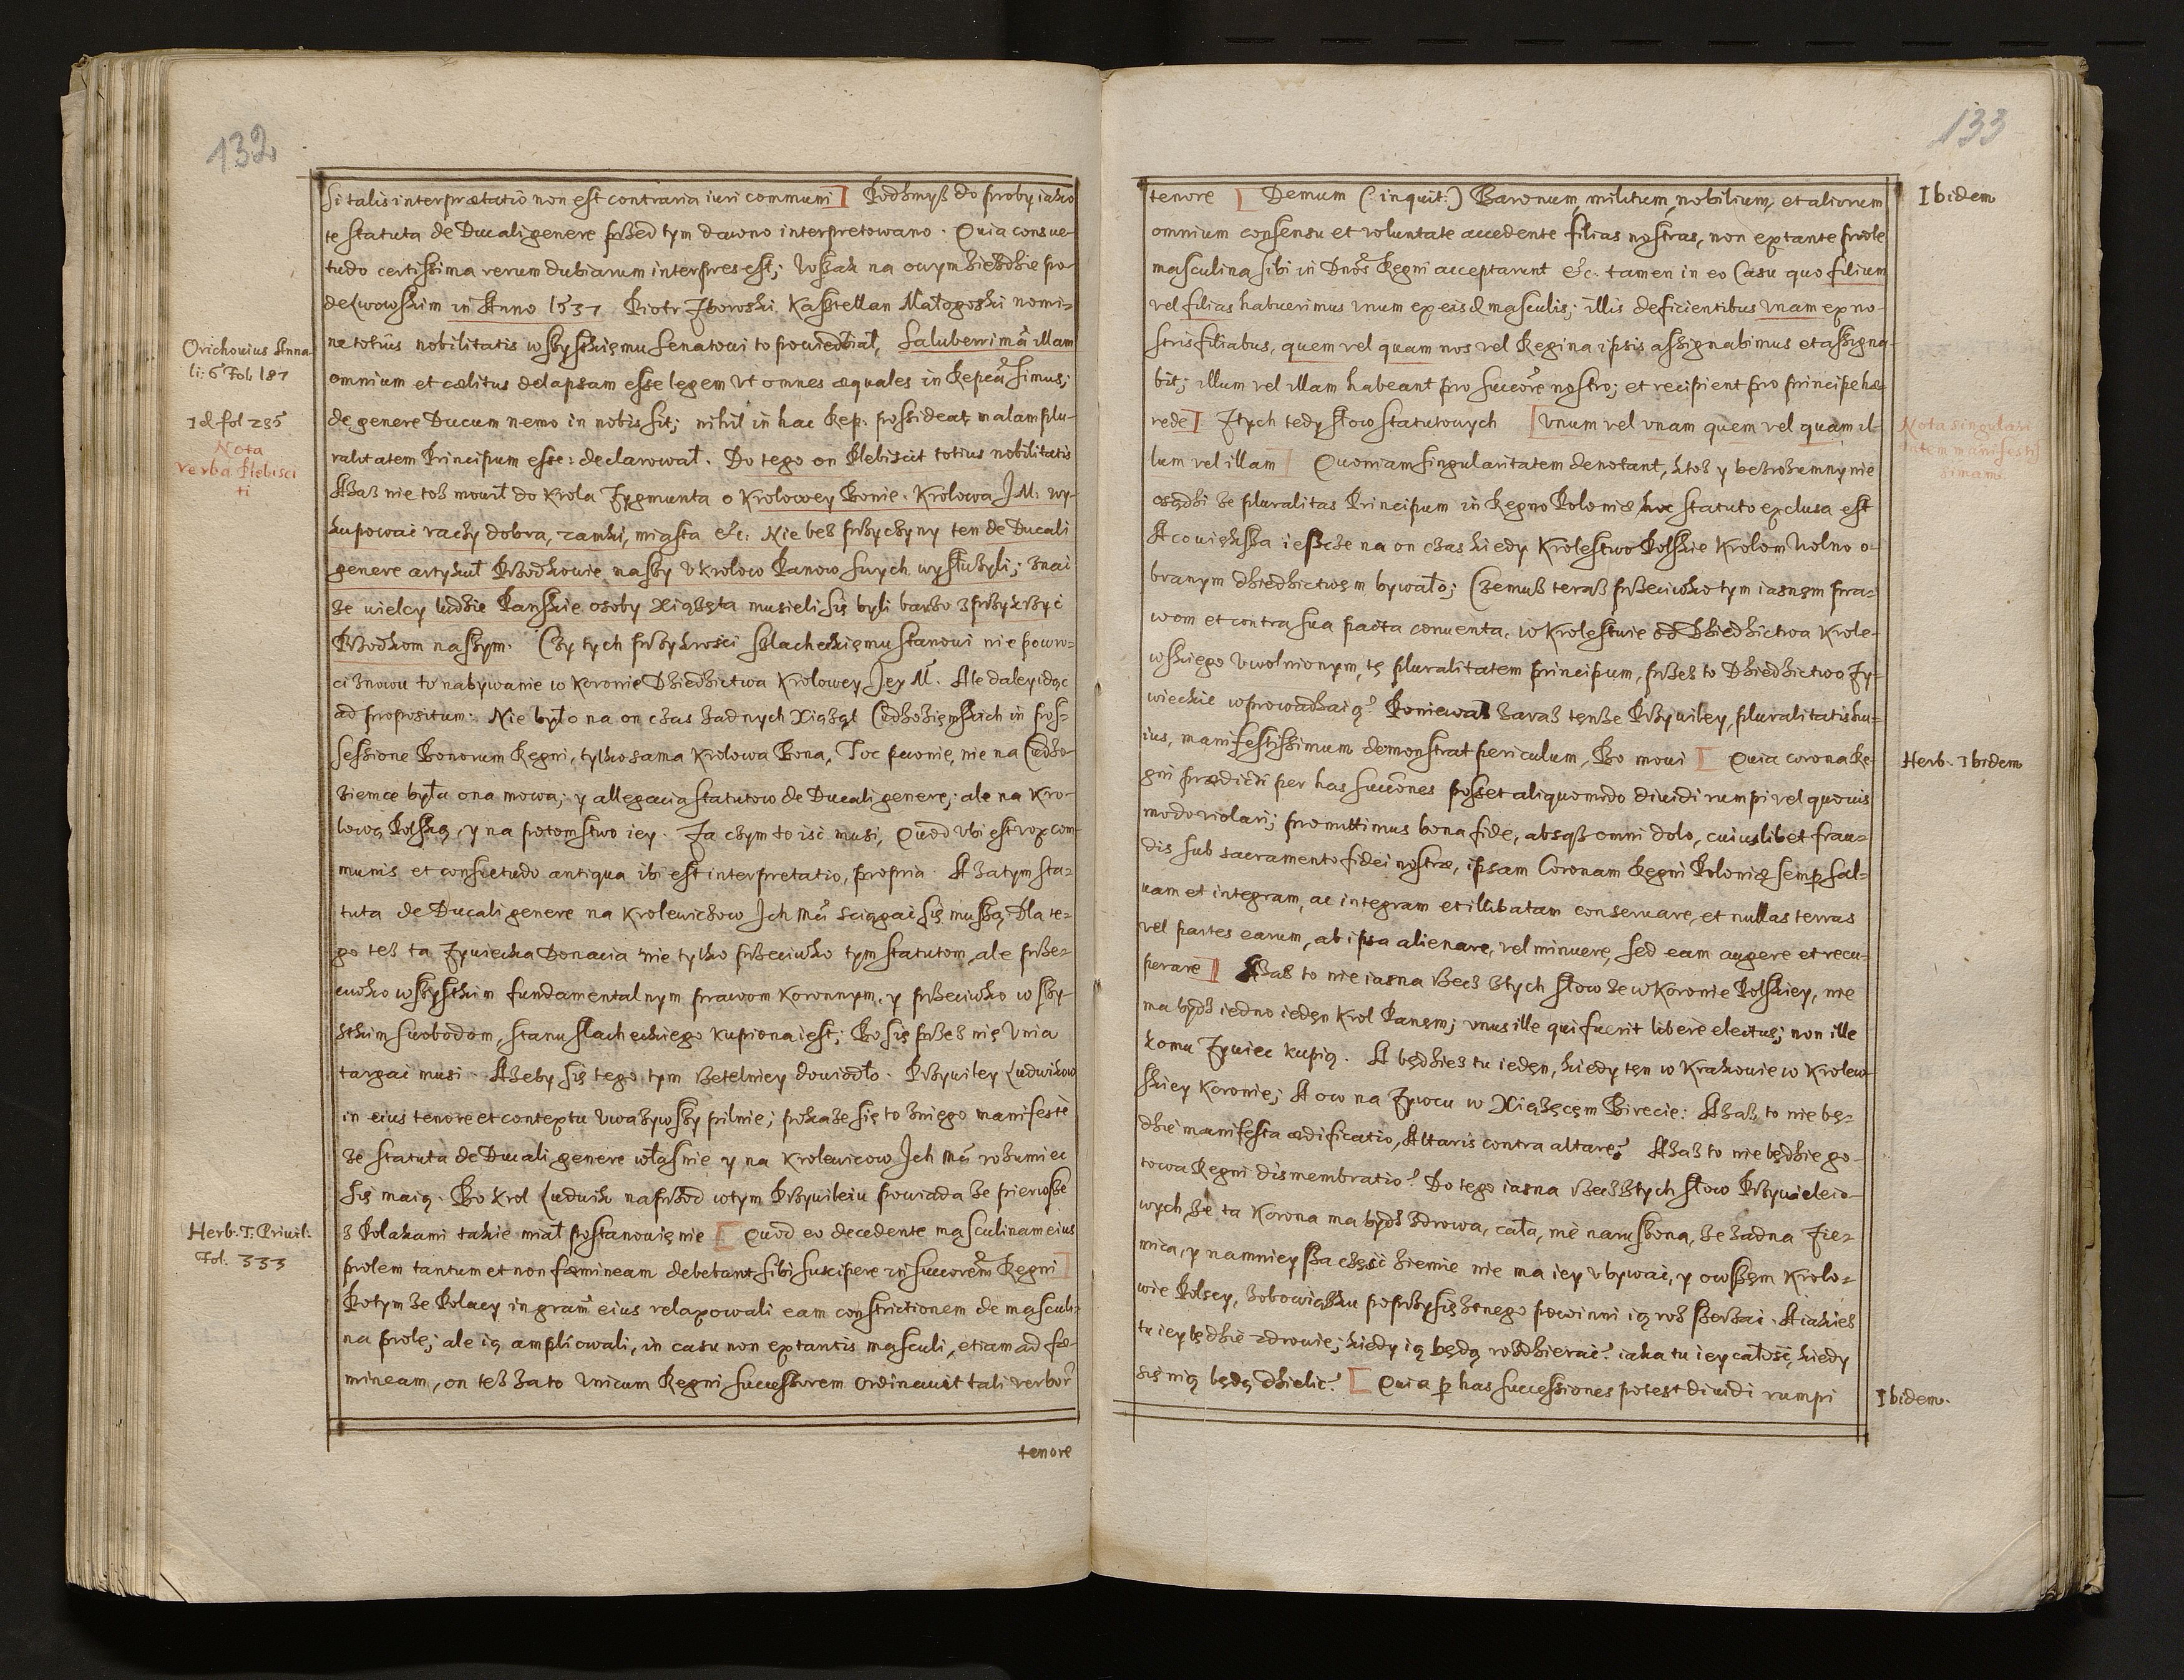 132
si talis interprætatio non est contraria iuri communi] Podźmyß do proby iako
te statuta de Ducali genere przed tym dawno interpretowano. Quia consue-
tudo certissima rerum dubiarum interpres est; Wszak na owym zieździe po-
de Lwowskim in Anno 1537 Piotr Zborowski Kasztellan Małogoski nomi-
ne totius nobilitatis wszystkięmu Senatowi to powiedział, Saluberrimā illam
Orichouius Anna
li: 6 Fol. 187
omnium et cælitus delapsam esse legem vt omnes æquales in Repca simus;
de genere Ducum nemo in nobis sit; nihil in hac Rep. possideat, malam plu-
Id fol 235
ralitatem Principum esse: declarował. Do tego on Plebiscit totius nobilitatis
Nota
verba Plebisci
ti
Azaz nie toż mowił do Krola Zygmunta o Krolowey Bonie. Krolowa J M: wy-
kupowai raczy dobra, zamki, miasta &c: Nie bez przyczyny ten de Ducali
genere artykuł Przodkowie naszy v Krolow Panow swych wysłużyli; znai
że wielcy ludzie Pańskie osoby Xiążęta musieli się byli barzo zprzykrzyć
Przodkom naszym. Czy tych przykrości szlacheckięmu stanowi nie powro-
ci znowu to nabywanie w Koronie Dziedzictwa Krolowey Jey M. Ale daley idąc
ad propositum: Nie było na on czas żadnych Xiążąt Cudzoziemskich in pos-
sessione Bonorum Regni, tylko sama Krolowa Bona, Toc pewnie, nie na Cudzo-
ziemce była ona mowa; y allegacia statutow de Ducali genere; ale na Kro-
lową Polską, y na potomstwo iey. Za czym to iść musi, Quod vbi est vox com-
munis et consuetudo antiqua ibi est interpretatio, propria. A zatym sta-
tuta de Ducali genere na Krolewiczow Ich Mći sciągai się muszą, Dla te-
go też ta Zywiecka Donacia nie tylko przeciwko tym statutom, ale prze-
ciwko wszystkim fundamentalnym prawom Koronnym, y przeciwko wszy-
stkim swobodom, stanu slacheckiego kupiona iest; Bo się przez nię Vnia
targai musi. A żeby się tego tym rzetelniey dowiodło. Przywiley Ludwikow
in eius tenore et contextu vważywszy pilnie; pokaże się to zniego manifestè
że statuta de Ducali genere własnie y na Krolewicow Ich Mći rozumiec
się maią. Bo Krol Ludwik naprzod wtym Przywileiu powiada że pierwsze
z Polakami takie miał postanowięnie [ Quod eo decedente masculinam eius
Herb. T. Priuil:
Fol: 333
prolem tantum et non fæmineam debebant sibi suscipere in successorem Regni]
Potym że Polacy in gram eius relaxowali eam constrictionem de masculi-
na prole; ale ią ampliowali, in casu non extantis masculi, etiam ad fæ-
mineam, on też zato Vnicum Regni successorem ordinauit tali verbor
tenore
133
tenore [ Demum (: inquit:) Baronum, militum, nobilium, et aliorum
Ibidem
omnium consensu et voluntate accedente filias nostras, non extante prole
masculina sibi in Dnos Regni acceptarunt &c. tamen in eo Casu quo filium
vel filias habuerimus vnum ex eisd masculis; illis deficientibus vnam ex no-
stris filiabus, quem vel quam nos vel Regina ipsis assignabimus et assigna-
bit; illum vel illam habeant pro succore nostro; et recipient pro principe hæ-
rede] Ztych tedy słow statutowych [vnum vel vnam quem vel quam il-
Nota singulari
tatem manifesti
simam
lum vel illam] Quoniam singularitatem denotant, ktoż y bezrozumny nie
osądzi że pluralitas Principum in Regno Poloniæ hoc statuto exclusa est
A co większa ieszcze na on czas kiedy Krolestwo Polskie Krolom Wolno o-
branym dziedzictwęm bywało; Czemuß teraß przeciwko tym iasnęm pra-
wom et contra sua pacta conuenta, w Krolestwie od Dziedzictwa Krole-
wskiego vwolnionym, tę pluralitatem principum, przez to Dziedzictwo Zy-
wieckie wprowadzaią? Poniewaß zaraß tęnże Przywiley, pluralitatis hu-
ius, manifestissimum demonstrat periculum, Bo mowi [ Quia corona Re-
Herb. Ibidem
gni prædicti per has succones posset aliquomodo diuidi rumpi vel quouis
modo violari; promittimus bona fide, absqȝ omni dolo, cuiuslibet frau-
dis sub sacramento fidei nostræ, ipsam Coronam Regni Poloniæ semp sal-
uam et integram, ac integram et illibatam conseruare, et nullas terras
vel partes earum, ab ipsa alienare, vel minuere, sed eam augere et recu-
perare] Azaß to nie iasna rzecz ztych słow że w Koronie Polskiey, nie
ma bydź iedno iedęn Krol Panęm; vnus ille qui fuerit liberè electus; non ille
komu Zywiec kupią. A będzieß tu iedęn, kiedy tęn w Krakowie w Krolew-
skiey Koronie; A ow na Zywcu w Xiążęcęm Birecie: Azaß to nie bę-
dzie manifesta ædificatio, Altaris contra altare? Azaß to nie będzie go-
towa Regni dismembratio? Do tego iasna rzecz ztych słow Przywileio-
wych, że ta Korona ma bydź zdrowa, cała, nie naruszona, że żadna Zie-
mica, y namnieysza częsć ziemie nie ma iey vbywai, y owszęm Krolo-
wie Polscy, zobowiązku poprzysiężonego powinni ią rosszerzai. A iakieß
tu iey będzie zdrowie; kiedy ią będą rozdzierai? iaka tu iey całość, kiedy
się nią będą dzielic? [ Quia p has successiones potest diuidi rumpi
Ibidem.